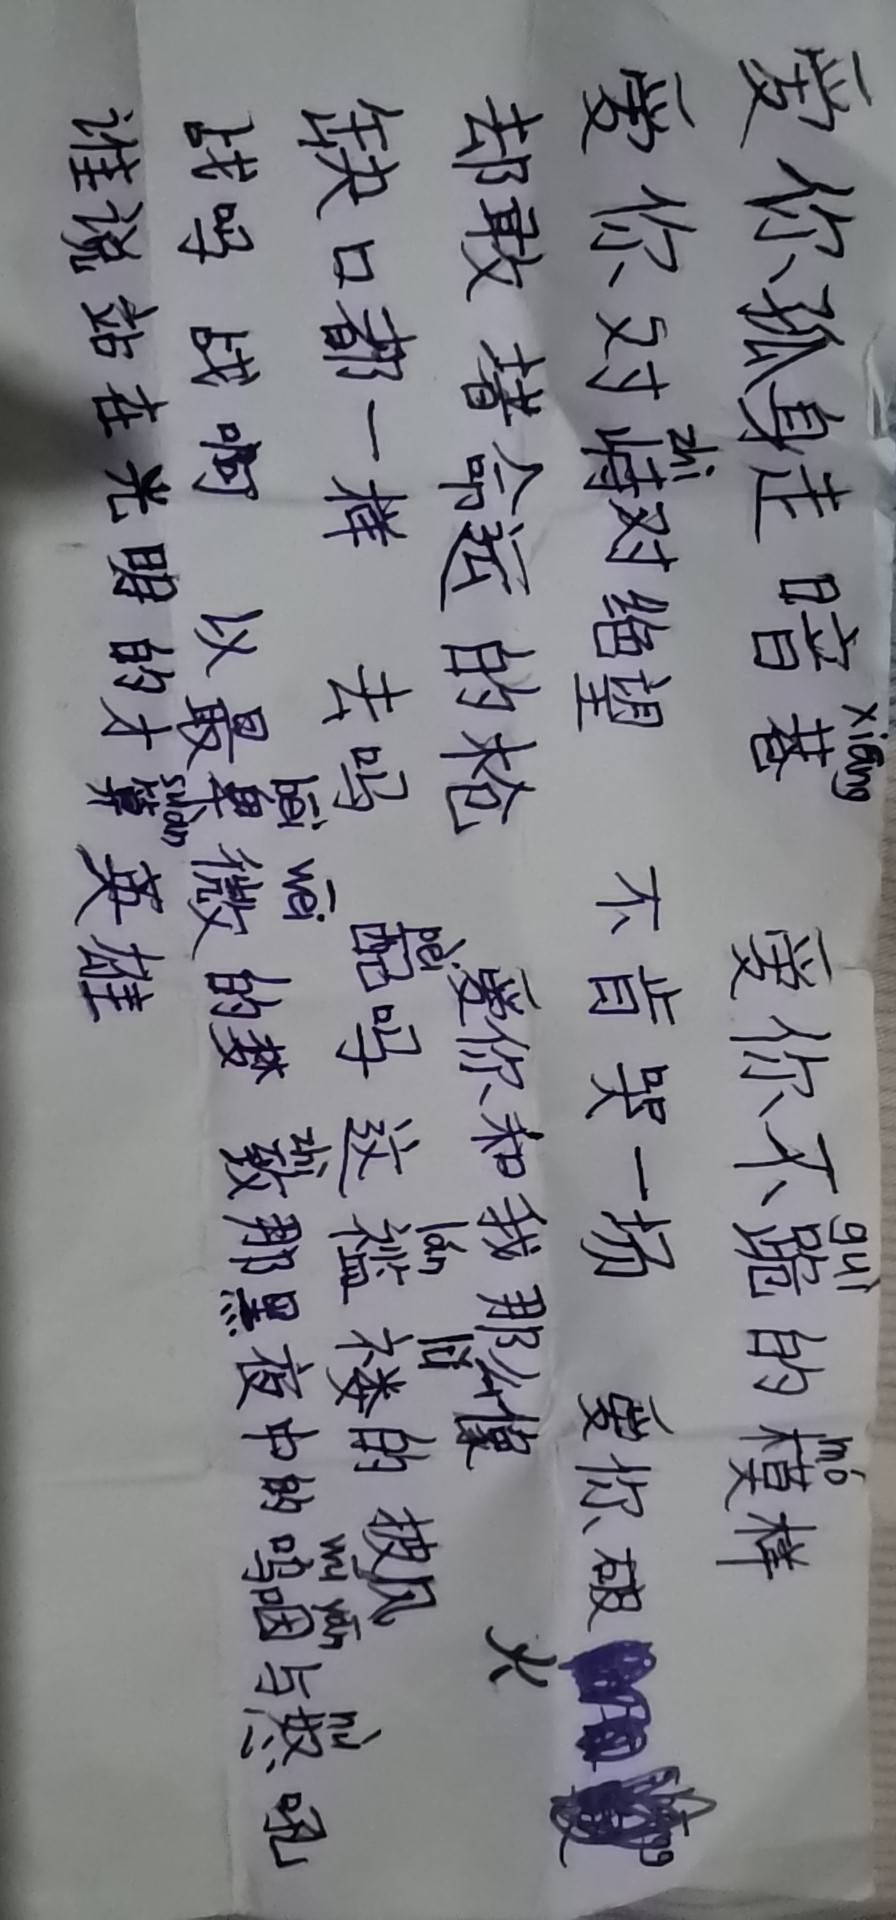 爱你孤身走暗巷 xiàng 爱你不跪 guì 的模 mó 样
爱你对峙 zhì 对绝望 不肯哭一场 爱你破
却敢堵命运的枪 爱你和我那么像 火
缺口都一样 去吗 配 pèi 吗 这褴 lán 褛 lǚ 的披风
战吗 战啊 以最卑 bēi 微 wēi 的梦 致 zhì 那黑夜中的呜咽 wū yān 与怒 nù 吼
谁说站在光明的才算 suàn 英雄